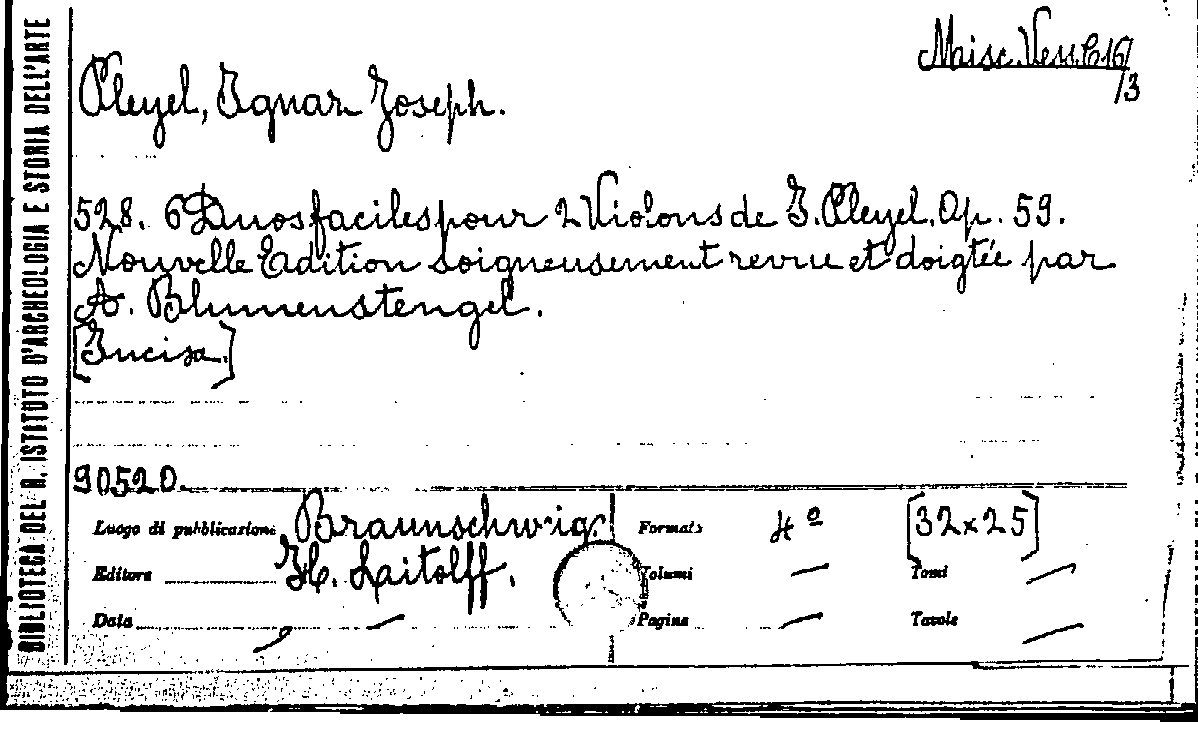 BIBLIOTECA DEL R. ISTITUTO D'ARCHEOLOGIA E STORIA DELL'ARTE
Misc. Vess. C. 16/3
Pleyel, Ignaz Joseph.
528. 6 Duos faciles pour 2 Violons de I. Pleyel. Op. 59.
Nouvelle Edition soigneusement revue et doigtée par
A. Blumenstengel.
[Incisa.]
90520.
Luogo di pubblicazione Braunschwig. Formato 4º [32x25]
Editore H. Laitolff. Volumi — Tomi —
Data — Pagine — Tavole —